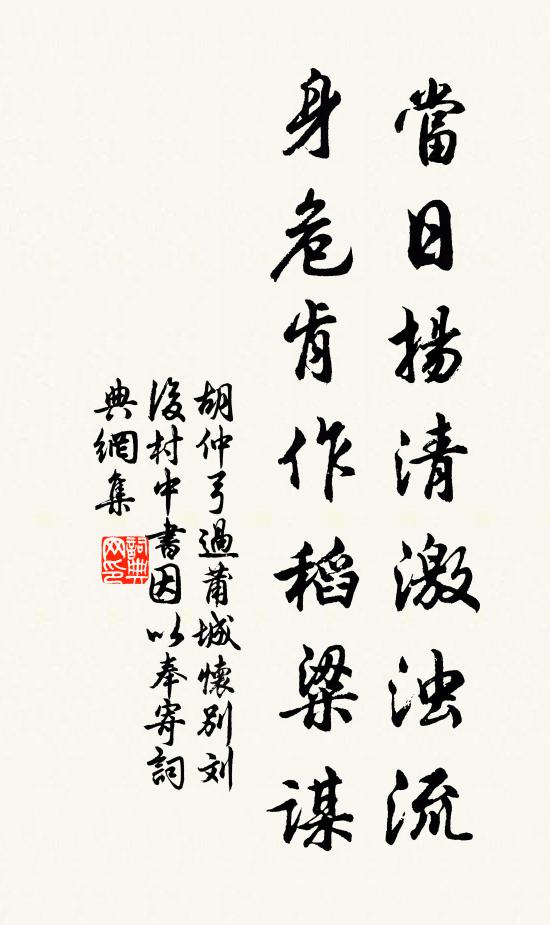 當日揚清激浊流
身危肯作稻粱謀
胡仲弓過莆城懷別刘
後村中書因以奉寄詞
典網集
詞典
网印